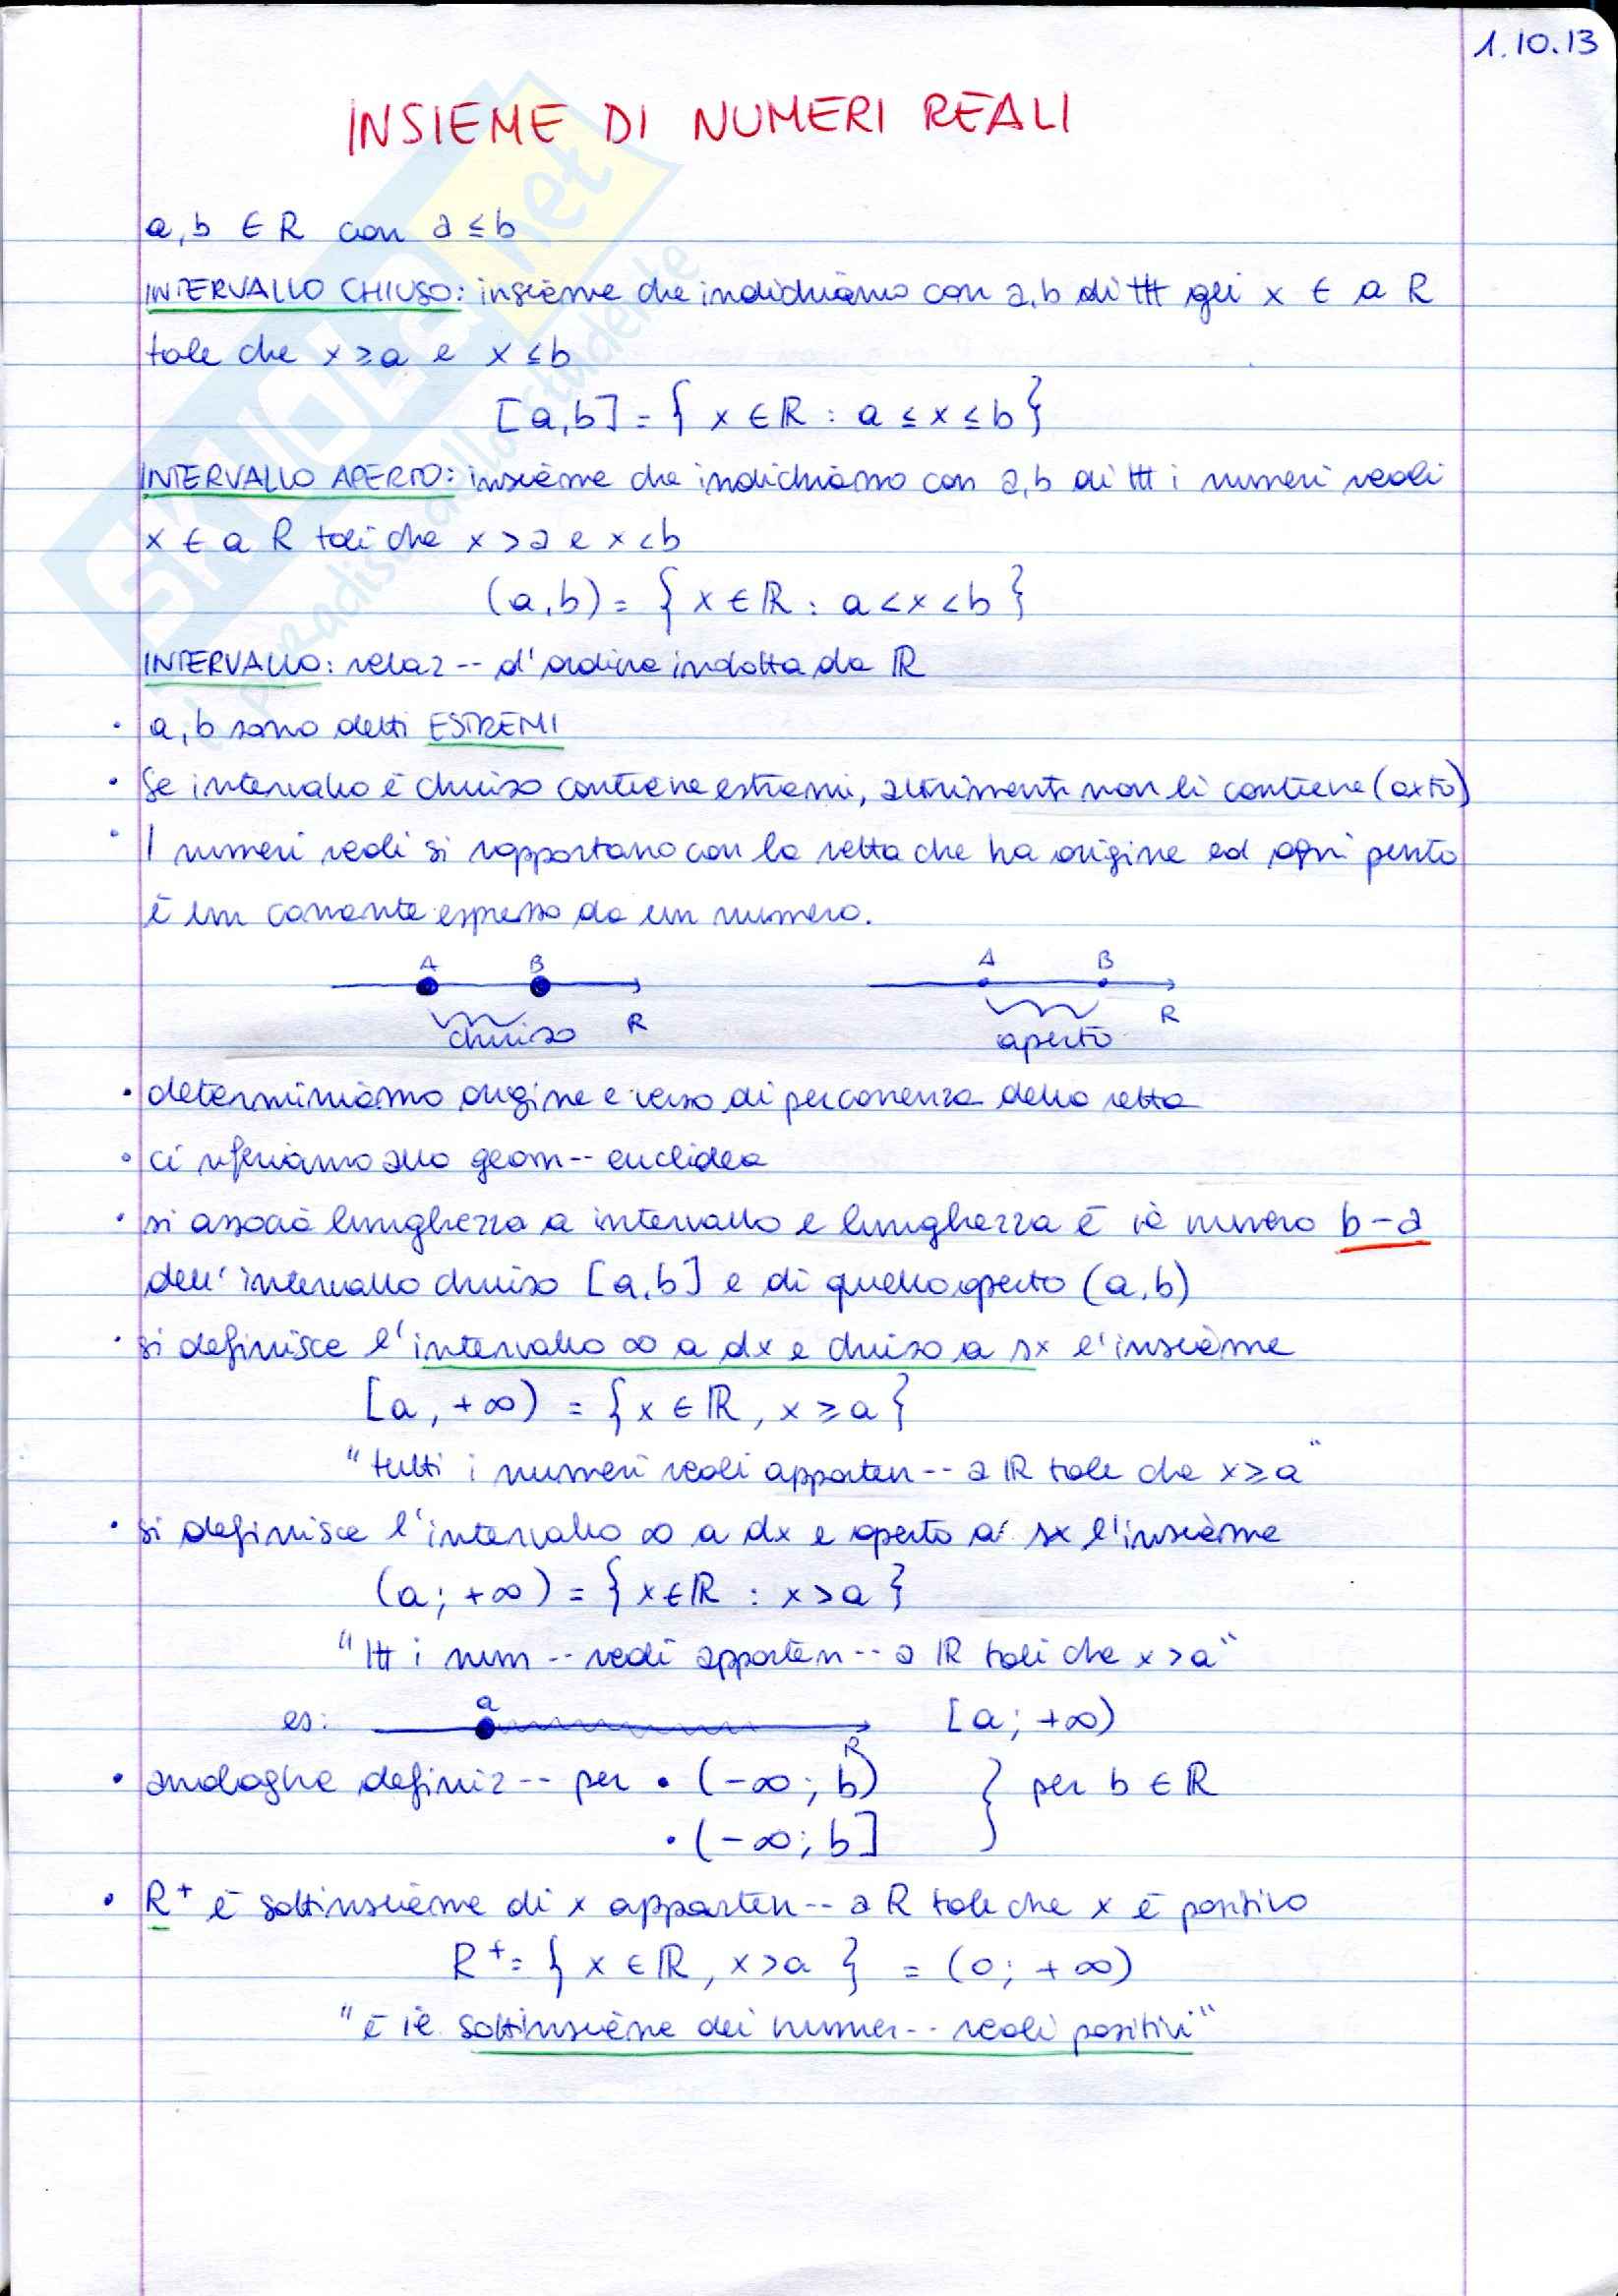 1.10.13
INSIEME DI NUMERI REALI
a,b ∈ R con a ≤ b
INTERVALLO CHIUSO: insieme che indichiamo con a,b di ttt gli x ∈ a R
tale che x ≥ a e x ≤ b
[a,b] = { x ∈ ℝ : a ≤ x ≤ b }
INTERVALLO APERTO: insieme che indichiamo con a,b di ttt i numeri reali
x ∈ a R tali che x > a e x < b
(a,b) = { x ∈ ℝ : a < x < b }
INTERVALLO: relaz-- d'ordine indotta da ℝ
· a,b sono detti ESTREMI
· Se intervallo è chiuso contiene estremi, altrimenti non li contiene (axto)
· I numeri reali si rapportano con la retta che ha origine ed ogni punto
è un espresso da un numero.
A B A B
R R
chiuso aperto
· determiniamo origine e verso di percorrenza della retta
· ci riferiamo alla geom-- euclidea
· si associa lunghezza a intervallo e lunghezza è il numero b-a
dell'intervallo chiuso [a,b] e di quello aperto (a,b)
· si definisce l'intervallo ∞ a dx e chiuso a sx l'insieme
[a, +∞) = { x ∈ ℝ, x ≥ a }
"tutti i numeri reali apparten-- a ℝ tale che x ≥ a"
· si definisce l'intervallo ∞ a dx e aperto a sx l'insieme
(a; +∞) = { x ∈ ℝ : x > a }
"ttt i num-- reali apparten-- a ℝ tali che x > a"
es: a [a; +∞)
R
· analoghe definiz-- per · (-∞; b) } per b ∈ ℝ
· (-∞; b]
· R⁺ è sottinsieme di x apparten-- a R tale che x è positivo
R⁺ = { x ∈ ℝ, x > a } = (0; +∞)
"è il sottinsieme dei numer-- reali positivi"
SKUOLA.net
il paradiso dello studente